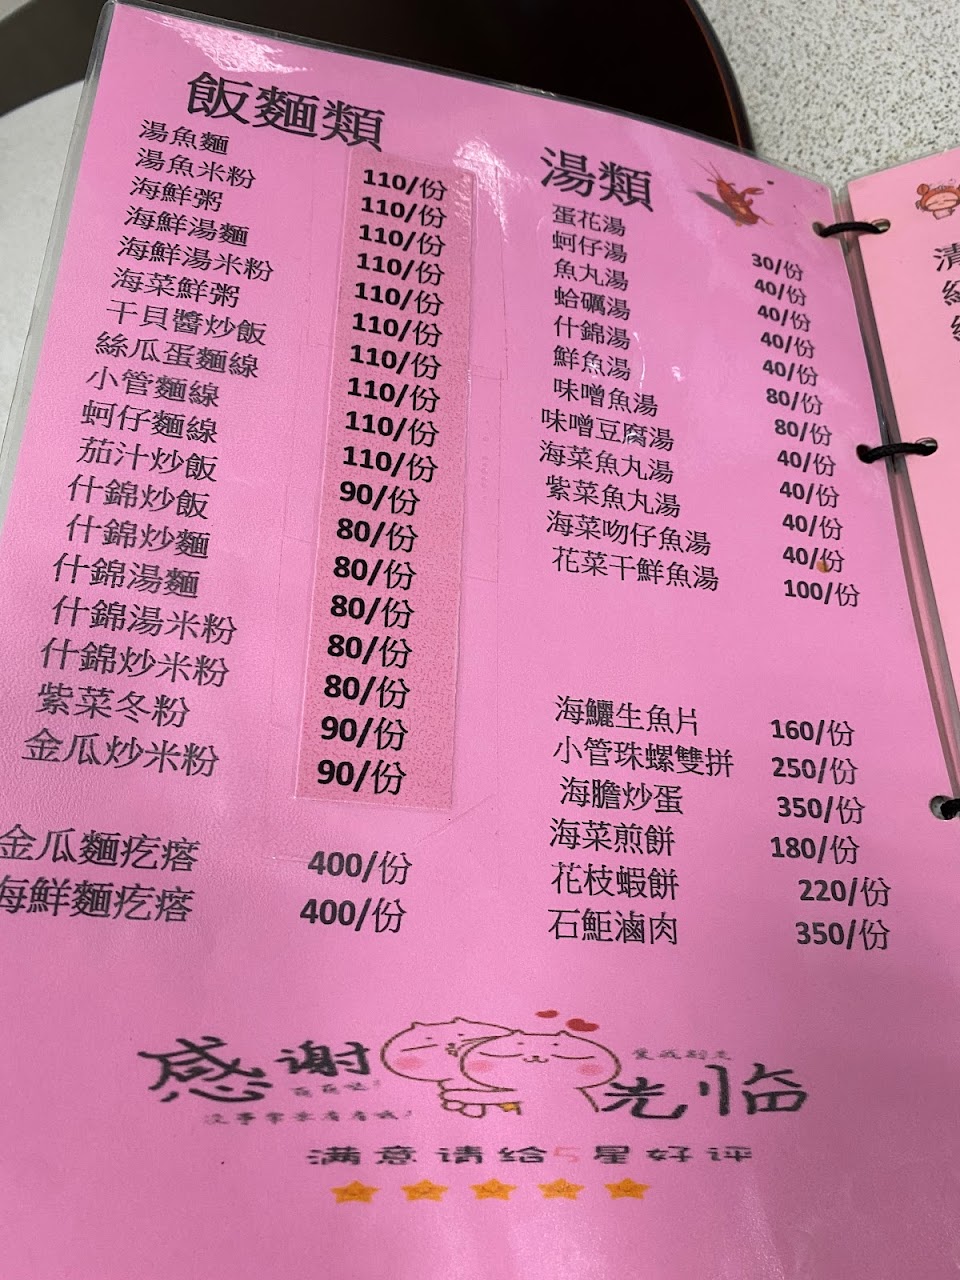 飯麵類
湯魚麵 110/份
湯魚米粉 110/份
海鮮粥 110/份
海鮮湯麵 110/份
海鮮湯米粉 110/份
海菜鮮粥 110/份
干貝醬炒飯 110/份
絲瓜蛋麵線 110/份
小管麵線 110/份
蚵仔麵線 110/份
茄汁炒飯 90/份
什錦炒飯 80/份
什錦炒麵 80/份
什錦湯麵 80/份
什錦湯米粉 80/份
什錦炒米粉 80/份
紫菜冬粉 90/份
金瓜炒米粉 90/份
金瓜麵疙瘩 400/份
海鮮麵疙瘩 400/份
湯類
蛋花湯 30/份
蚵仔湯 40/份
魚丸湯 40/份
蛤礪湯 40/份
什錦湯 40/份
鮮魚湯 80/份
味噌魚湯 80/份
味噌豆腐湯 40/份
海菜魚丸湯 40/份
紫菜魚丸湯 40/份
海菜吻仔魚湯 40/份
花菜干鮮魚湯 100/份
海鱺生魚片 160/份
小管珠螺雙拼 250/份
海膽炒蛋 350/份
海菜煎餅 180/份
花枝蝦餅 220/份
石鮔滷肉 350/份
感谢光临
没事常来看看哦!
满意请给5星好评
清